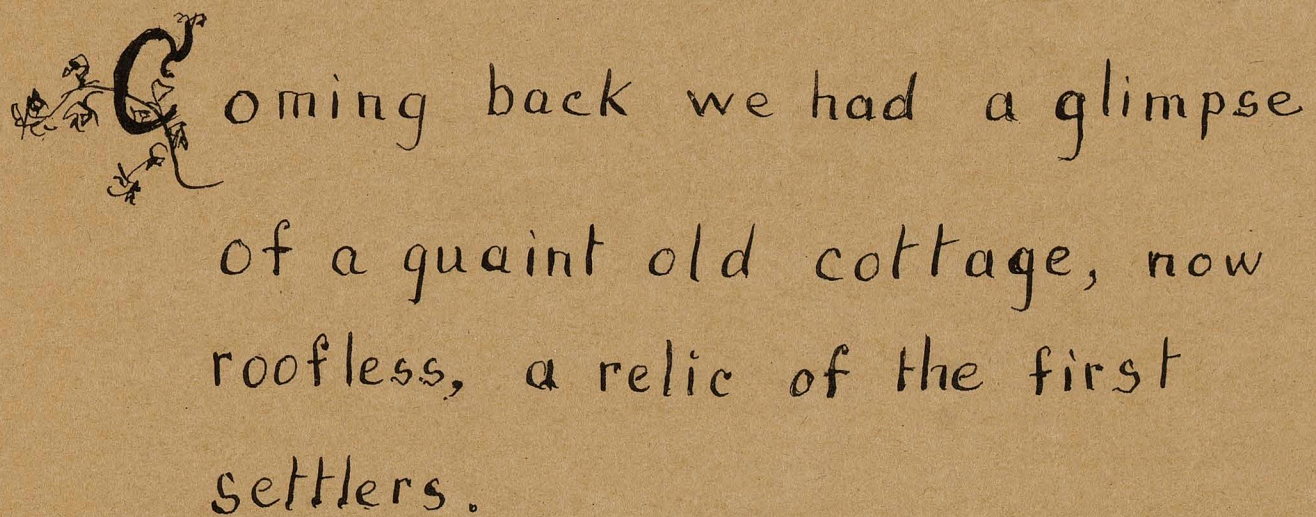 Coming back we had a glimpse
of a quaint old cottage, now
roofless, a relic of the first
settlers.